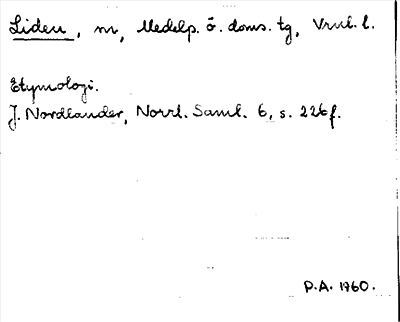 Liden, nr, Medelp. ö. doms. tg, Vrnl. l.
Etymologi.
J. Nordlander, Norrl. Saml. 6, s. 226 f.
P.A. 1960.